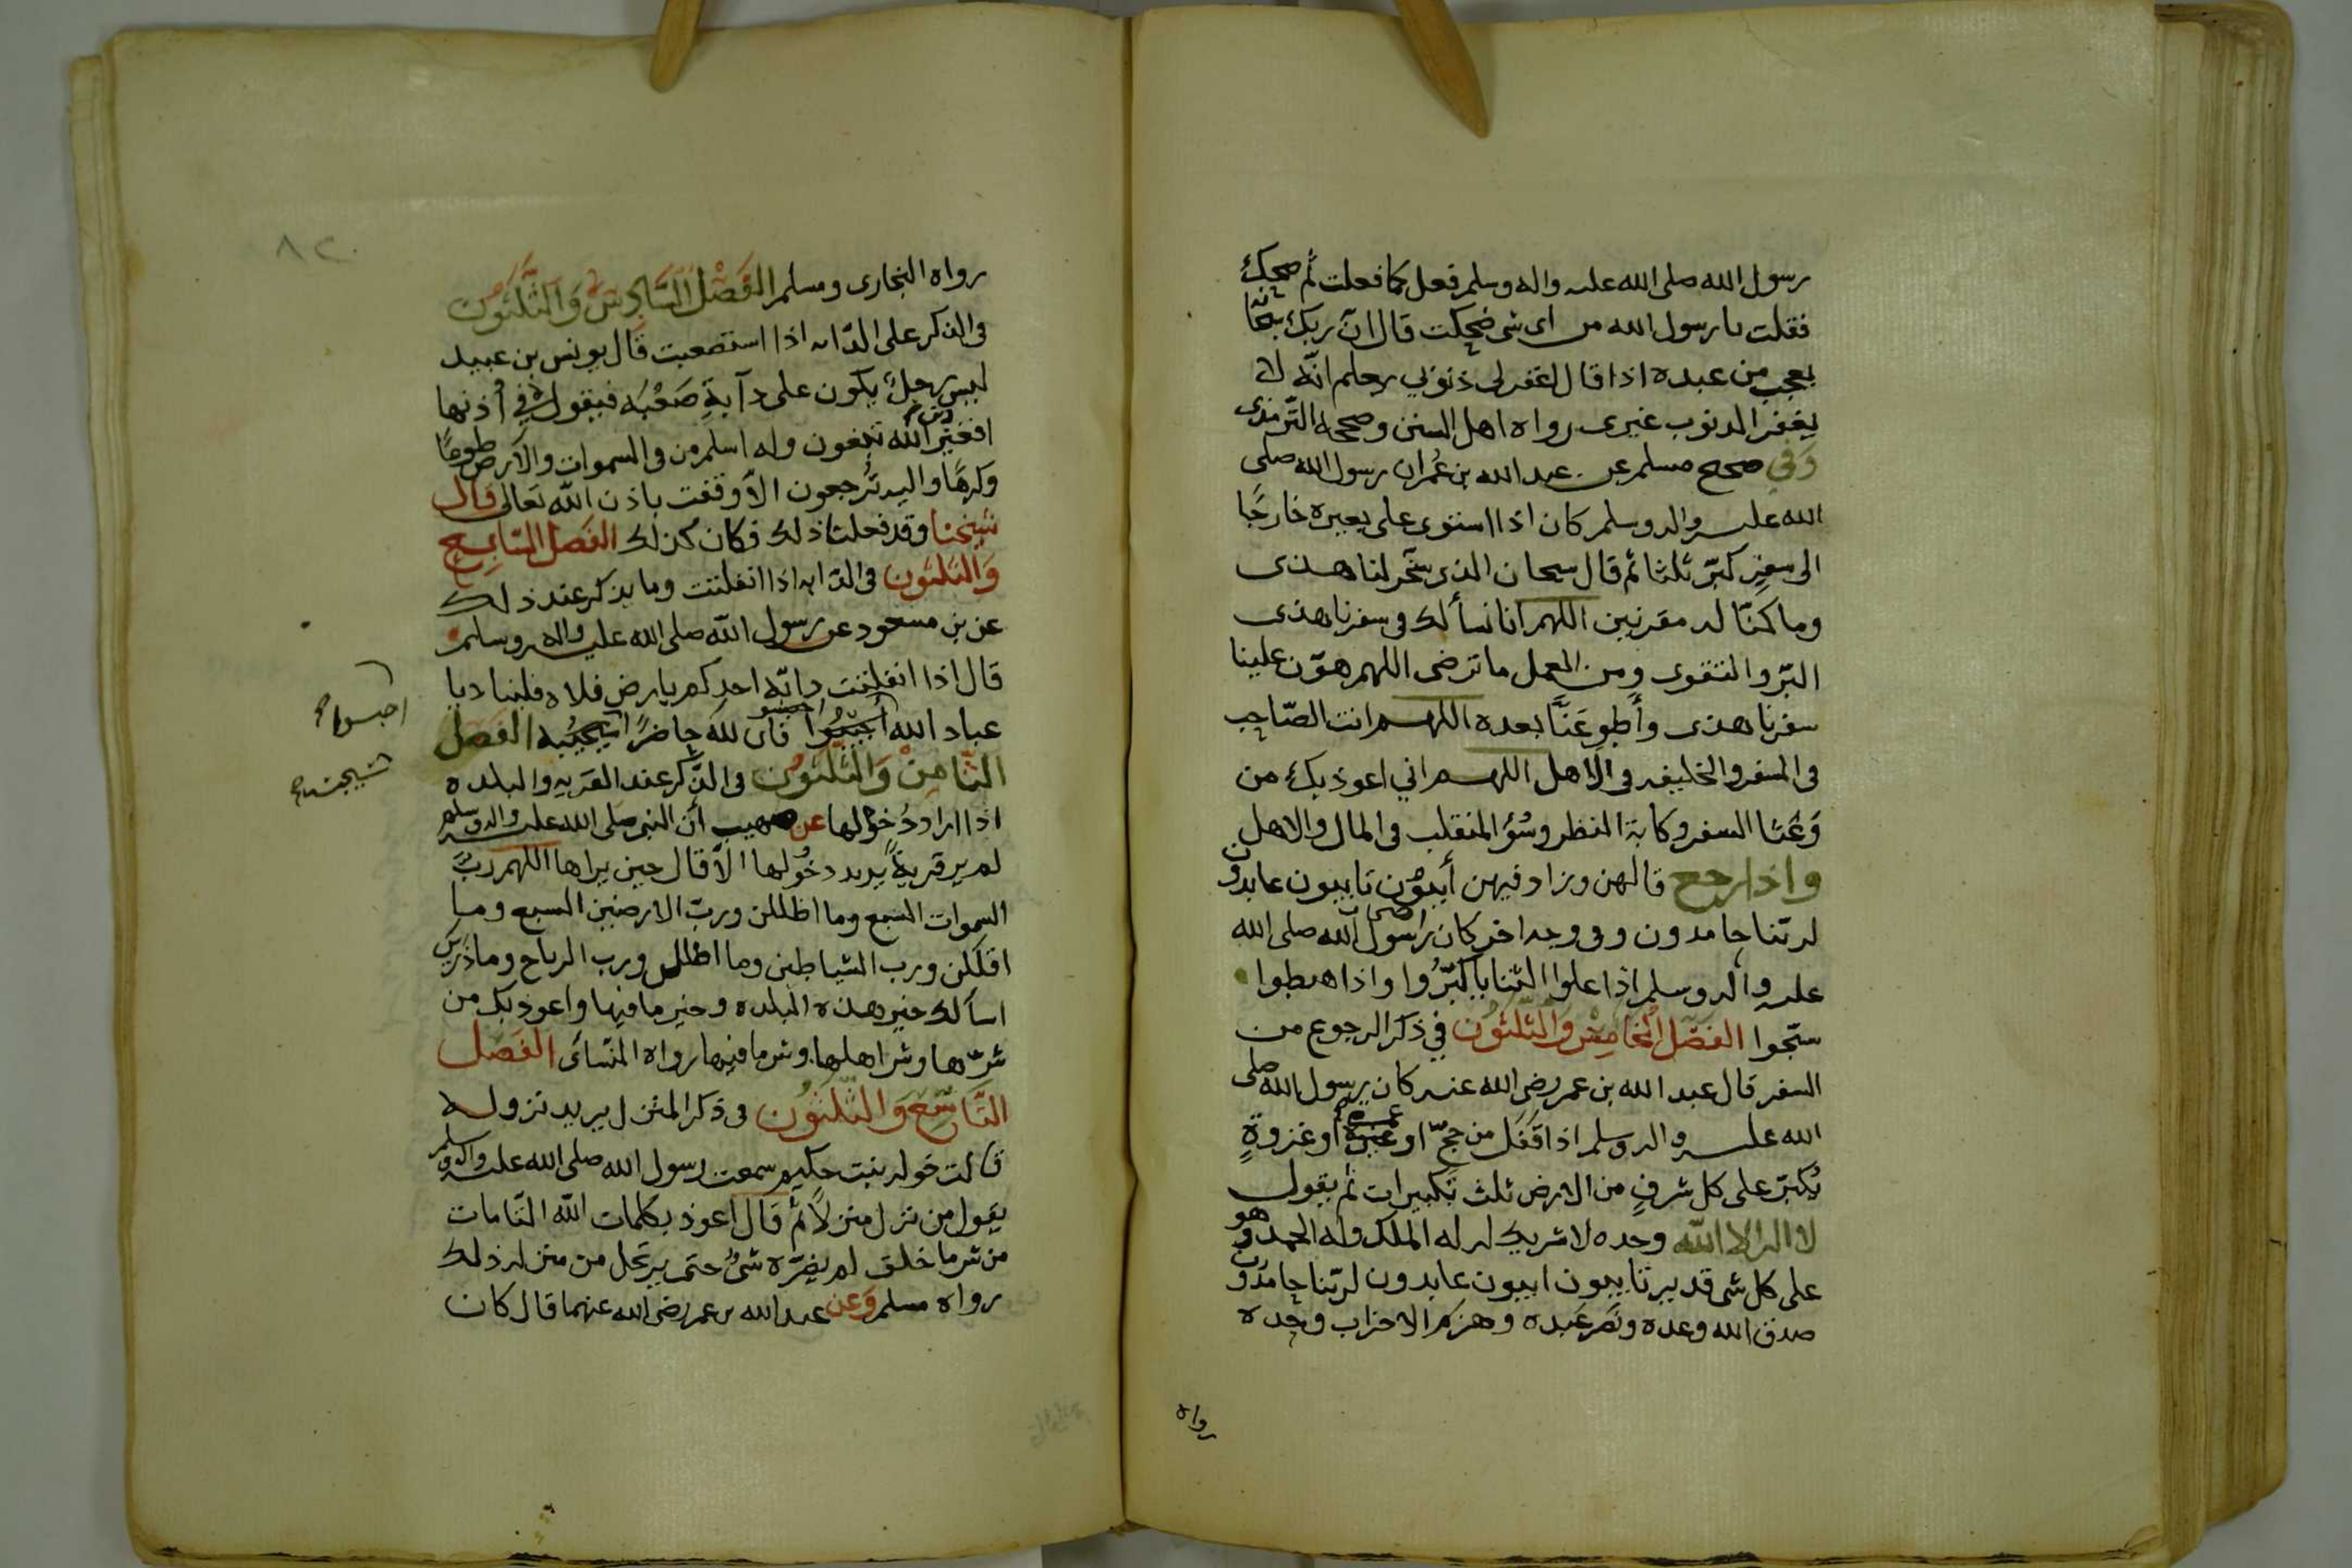 رسول الله صلى الله عليه واله وسلم فعل كما فعلت ثم ضحك
فقلت يا رسول الله من اى شى ضحكت قال ان ربك سبحانه
يعجب من عبده اذا قال اغفر لى ذنوبي يعلم انه لا
يغفر الذنوب غيرى رواه اهل السنن وصححه الترمذى
وفي صحيح مسلم عن عبد الله بن عمر ان رسول الله صلى
الله عليه واله وسلم كان اذا استوى على بعيره خارجًا
الى سفرٍ كبّر ثلثا ثم قال سبحان الذى سخّر لنا هذى
وما كنّا له مقرنين اللهم انا نسألك فى سفرنا هذى
البرّ والتقوى ومن العمل ما ترضى اللهم هوّن علينا
سفرنا هذى وأطوِ عَنَّا بعده اللهم انت الصّاحب
فى السفر والخليفه فى الاهل اللهم اني اعوذ بك من
وَعْثا السفر وكابة المنظر وسُؤ المنقلب فى المال والاهل
واذا رجع قالهن وزاد فيهن أيبون تايبون عابدون
لربّنا حامدون وفى وجه اخر كان اصحاب رسول الله صلى الله
عليه واله وسلم اذا علوا الثنايا كبّرُوا واذا هبطوا
سبّحوا الفصل الخامِسْ وَالثلثون في ذكر الرجوع من
السفر قال عبد الله بن عمر رضى الله عنه كان رسول الله صلى
الله عليه واله وسلم اذا قَفَل من حجٍّ او عمرة او غزوةٍ
يُكبّر على كل شرفٍ من الارض ثلث تكبيرات ثم يقول
لا اله الا الله وحده لا شريك له له الملك وله الحمد وهو
على كل شى قدير تايبون ايبون عابدون لربّنا حامدون
صدق الله وعده ونَصَر عَبده وهزَم الاحزاب وحده
رواه
٨٢
رواه البخارى ومسلم الفَصْل السّادِسْ وَالثَّلثُون
فى الذكر على الدّابه اذا استصعبت قال يونس بن عبيد
ليس رجلٌ يكون على دآبةٍ صَعْبَه فيقول في أذنها
افغيرَ دين الله تبغون وله اسلم من فى السموات والارض طوعًا
وكرهًا واليه تُرجعون الّا وقفت باذن الله تعالى قال
شيخنا وقد فعلنا ذلك فكان كذلك الفَصْل السّابِع
وَالثلثون فى الدّابه اذا انفلتت وما يذكر عند ذلك
عن بن مسعود عن رسول الله صلى الله عليه واله وسلم
قال اذا انفلتت دابّة احدكم بارض فلاه فليناد يا
عباد الله احبسوا فان لله حاضرًا سيحبسه الفَصْل
احبسوا
سيحبسه
الثّامِنْ وَالثلثُون فى الذّكر عند القريه والبلده
اذا اراد دُخُولها عن صهيب أن النبى صلى الله عليه واله وسلم
لم ير قريةً يريد دخُولها الّا قال حين يراها اللهم ربَّ
السموات السّبع وما اظللن وربّ الارضين السبع وما
اقللن ورب الشياطين وما اضللن ورب الرياح وما ذرين
اسألك خير هذه البلده وخير ما فيها واعوذ بك من
شرّها وشر اهلها وشر ما فيها رواه النّسائى الفَصل
التّاسِع وَالثّلثُون فى ذكر المنزل يريد نزوله
قالت خوله بنت حكيم سمعت رسول الله صلى الله عليه واله وسلم
يقول من نزل منزلًا ثم قال اعوذ بكلمات الله التّامات
من شر ما خلق لم يضرّه شىٌ حتى يرتحل من منزله ذلك
رواه مسلم وَعن عبد الله بن عمر رضى الله عنهما قال كان